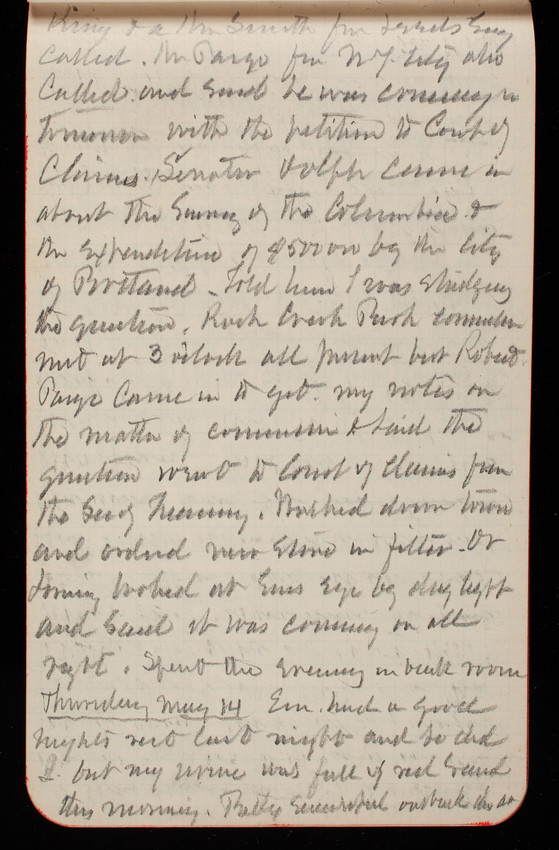 King & a Mr Smith from
called. Mr Paige from N.Y. City also
called and said he was coming in
tomorrow with the petition to Court of
Claims. Senator Dolph came in
about the Survey of the Columbia &
the expenditure of $50000 by the City
of Portland. Told him I was studying
the question. Rock Creek Park commission
met at 3 o'clock all present but Robert
Paige came in to get my notes on
the matter of commission & said the
question went to Court of Claims from
the Secy Treasury. Walked down town
and ordered new stone in filter. Dr
Loring looked at Ems eye by day light
and said it was coming on all
right. Spent the evening in back room
Thursday May 14 Em had a good
nights rest last night and so did
I but my urine was full of red sand
this morning. Patsy